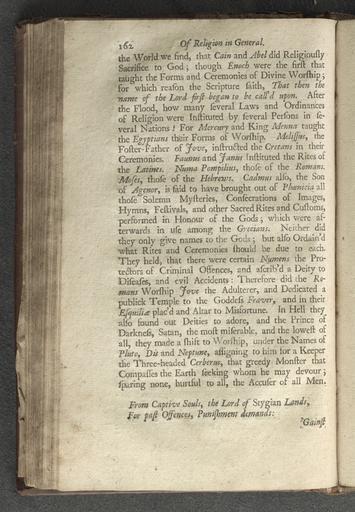 162 Of Religion in General.
the World we find, that Cain and Abel did Religiously
Sacrifice to God; though Enoch were the first that
taught the Forms and Ceremonies of Divine Worship;
for which reason the Scripture saith, That then the
name of the Lord first began to be call'd upon. After
the Flood, how many several Laws and Ordinances
of Religion were Instituted by several Persons in se-
veral Nations? For Mercury and King Menna taught
the Egyptians their Forms of Worship. Melissus, the
Foster-Father of Jove, instructed the Cretans in their
Ceremonies. Faunus and Janus Instituted the Rites of
the Latines. Numa Pompilius, those of the Romans.
Moses, those of the Hebrews. Cadmus also, the Son
of Agenor, is said to have brought out of Phœnicia all
those Solemn Mysteries, Consecrations of Images,
Hymns, Festivals, and other Sacred Rites and Customs,
performed in Honour of the Gods; which were af-
terwards in use among the Grecians. Neither did
they only give names to the Gods; but also Ordain'd
what Rites and Ceremonies should be due to each.
They held, that there were certain Numens the Pro-
tectors of Criminal Offences, and ascrib'd a Deity to
Diseases, and evil Accidents: Therefore did the Ro-
mans Worship Jove the Adulterer, and Dedicated a
publick Temple to the Goddess Feaver, and in their
Esquiliæ plac'd and Altar to Misfortune. In Hell they
also found out Deities to adore, and the Prince of
Darkness, Satan, the most miserable, and the lowest of
all, they made a shift to Worship, under the Names of
Pluto, Dis and Neptune, assigning to him for a Keeper
the Three-headed Cerberus, that greedy Monster that
Compasses the Earth seeking whom he may devour;
sparing none, hurtful to all, the Accuser of all Men.
From Captive Souls, the Lord of Stygian Lands,
For past Offences, Punishment demands:
'Gainst